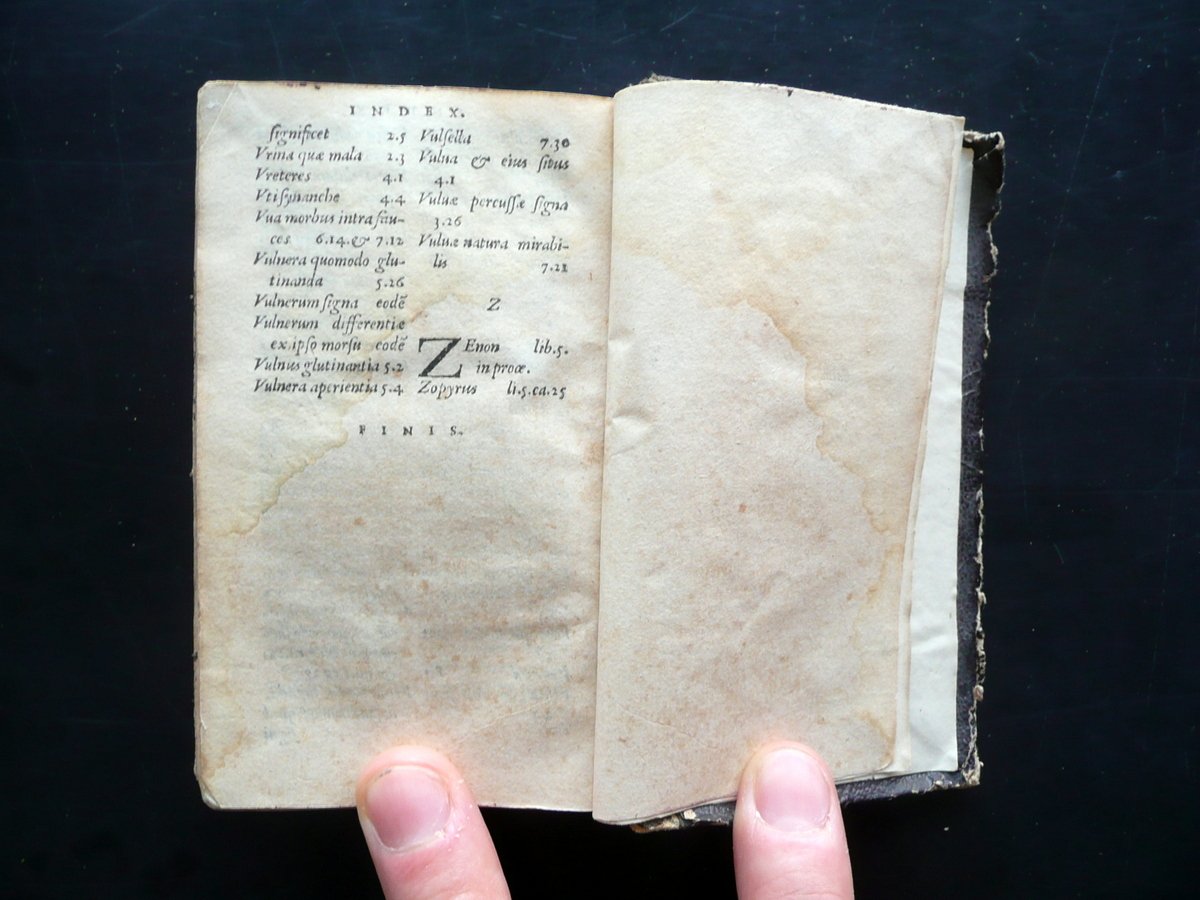 INDEX.
significet 2.5
Vrina quæ mala 2.3
Vreteres 4.1
Vtisynanche 4.4
Vua morbus intra fau-
ces 6.14. & 7.12
Vulnera quomodo glu-
tinanda 5.26
Vulnerum signa eodẽ
Vulnerum differentiæ
ex ipso morsu eodẽ
Vulnus glutinantia 5.2
Vulnera aperientia 5.4
Vulsella 7.30
Vulua & eius situs
4.1
Vuluæ percussæ signa
3.26
Vuluæ natura mirabi-
lis 7.21
Z
ZEnon lib.5.
in proœ.
Zopyrus li.5.ca.25
FINIS.